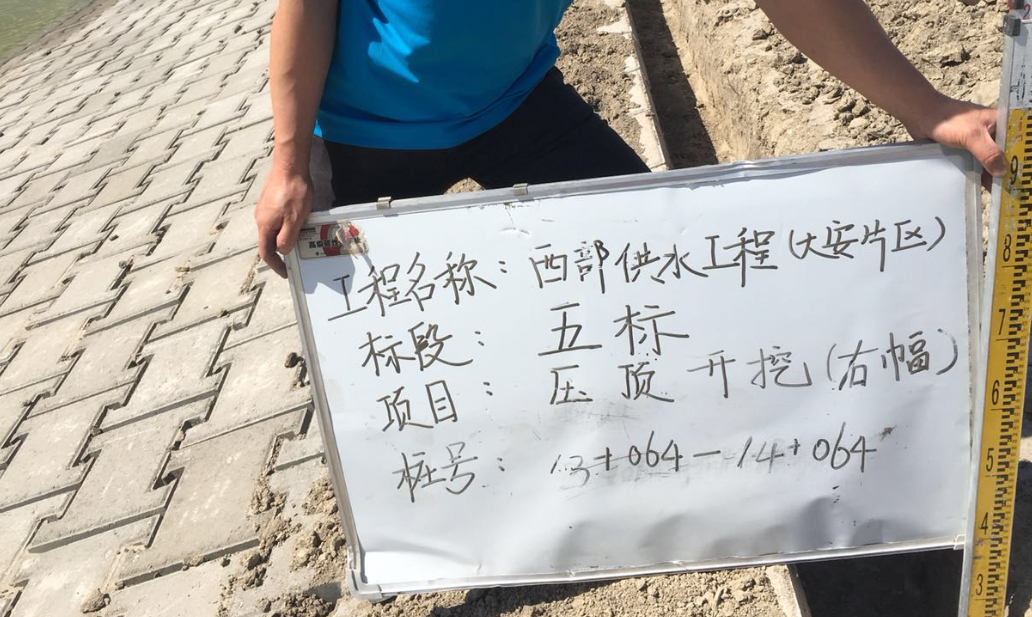 工程名称：西部供水工程(大安片区)
标段：五标
项目：压顶开挖(右幅)
桩号：13+064-14+064
9
8
7
6
5
4
3